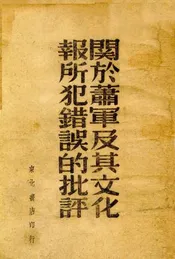 關於蕭軍及其文化
報所犯錯誤的批評
東北書店印行